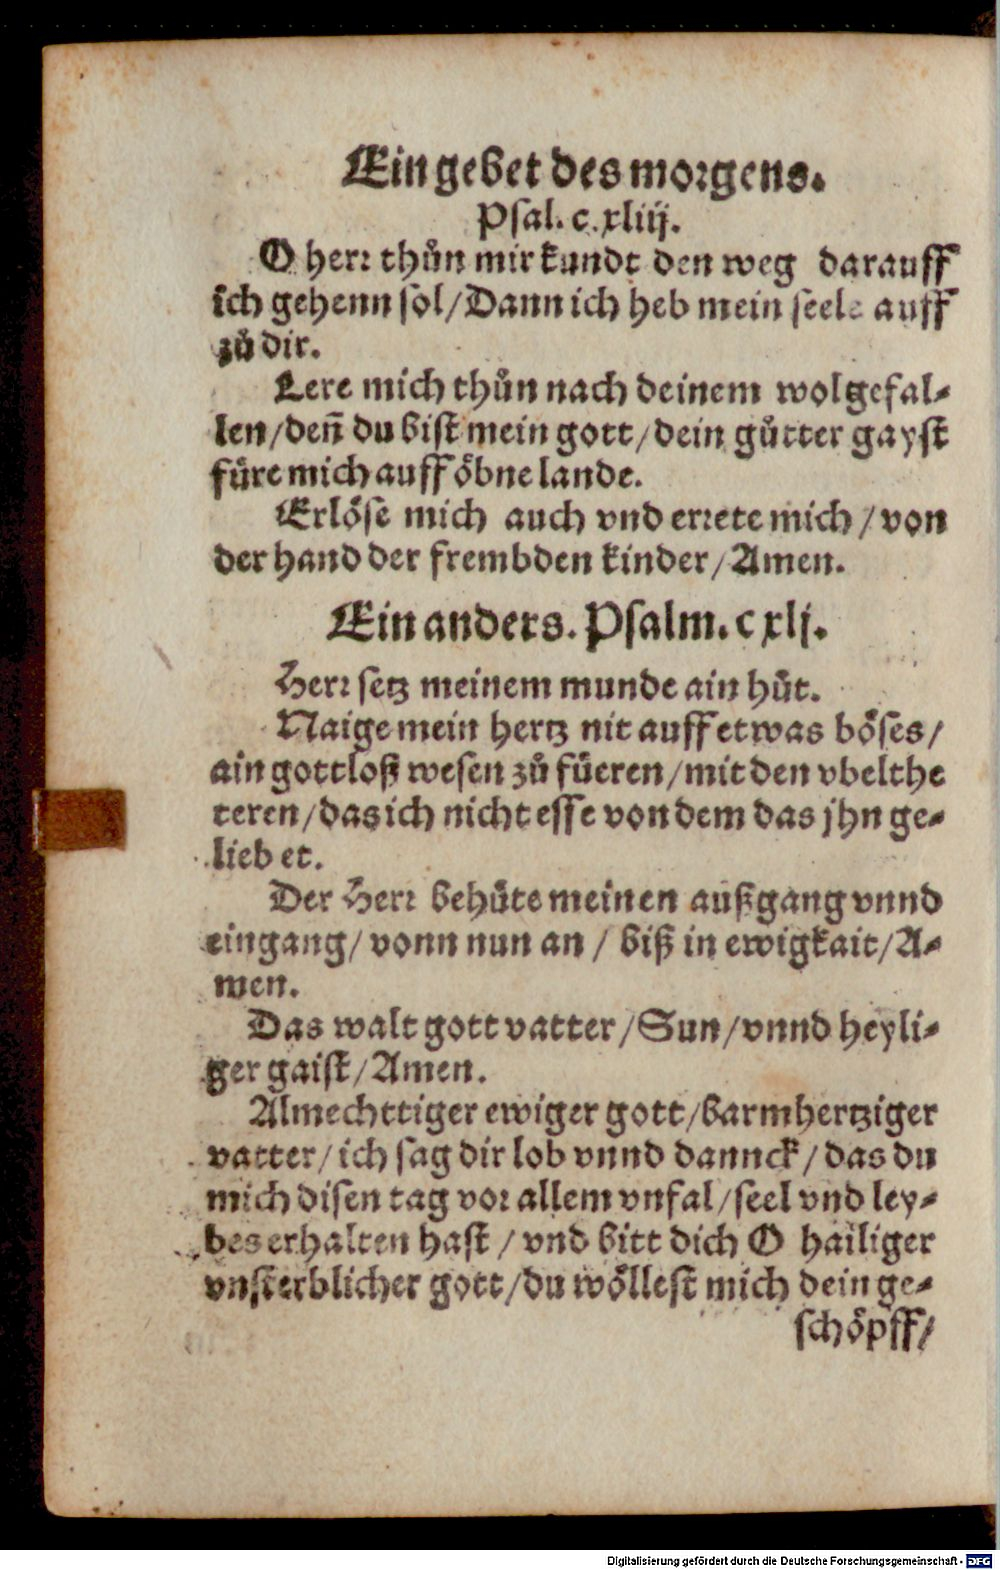 Ein gebet des morgens.
Psal. c.xliij.
O herr thůn mir kundt den weg darauff
ich gehenn sol/Dann ich heb mein seele auff
zů dir.
Lere mich thůn nach deinem wolgefal-
len/deñ du bist mein gott/dein gůtter gayst
füre mich auff öbne lande.
Erlöse mich auch vnd errete mich/von
der hand der frembden kinder/Amen.
Ein anders. Psalm. c xlj.
Herr setz meinem munde ain hůt.
Naige mein hertz nit auff etwas böses/
ain gottloß wesen zů füeren/mit den vbelthe
teren/das ich nicht esse von dem das jhn ge-
liebet.
Der Herr behüte meinen außgang vnnd
eingang/vonn nun an/biß in ewigkait/A-
men.
Das walt gott vatter/Sun/vnnd heyli-
ger gaist/Amen.
Almechttiger ewiger gott/barmhertziger
vatter/ich sag dir lob vnnd dannck/das du
mich disen tag vor allem vnfal/seel vnd ley-
bes erhalten hast/vnd bitt dich O hailiger
vnsterblicher gott/du wöllest mich dein ge-
schöpff/
Digitalisierung gefördert durch die Deutsche Forschungsgemeinschaft - DFG